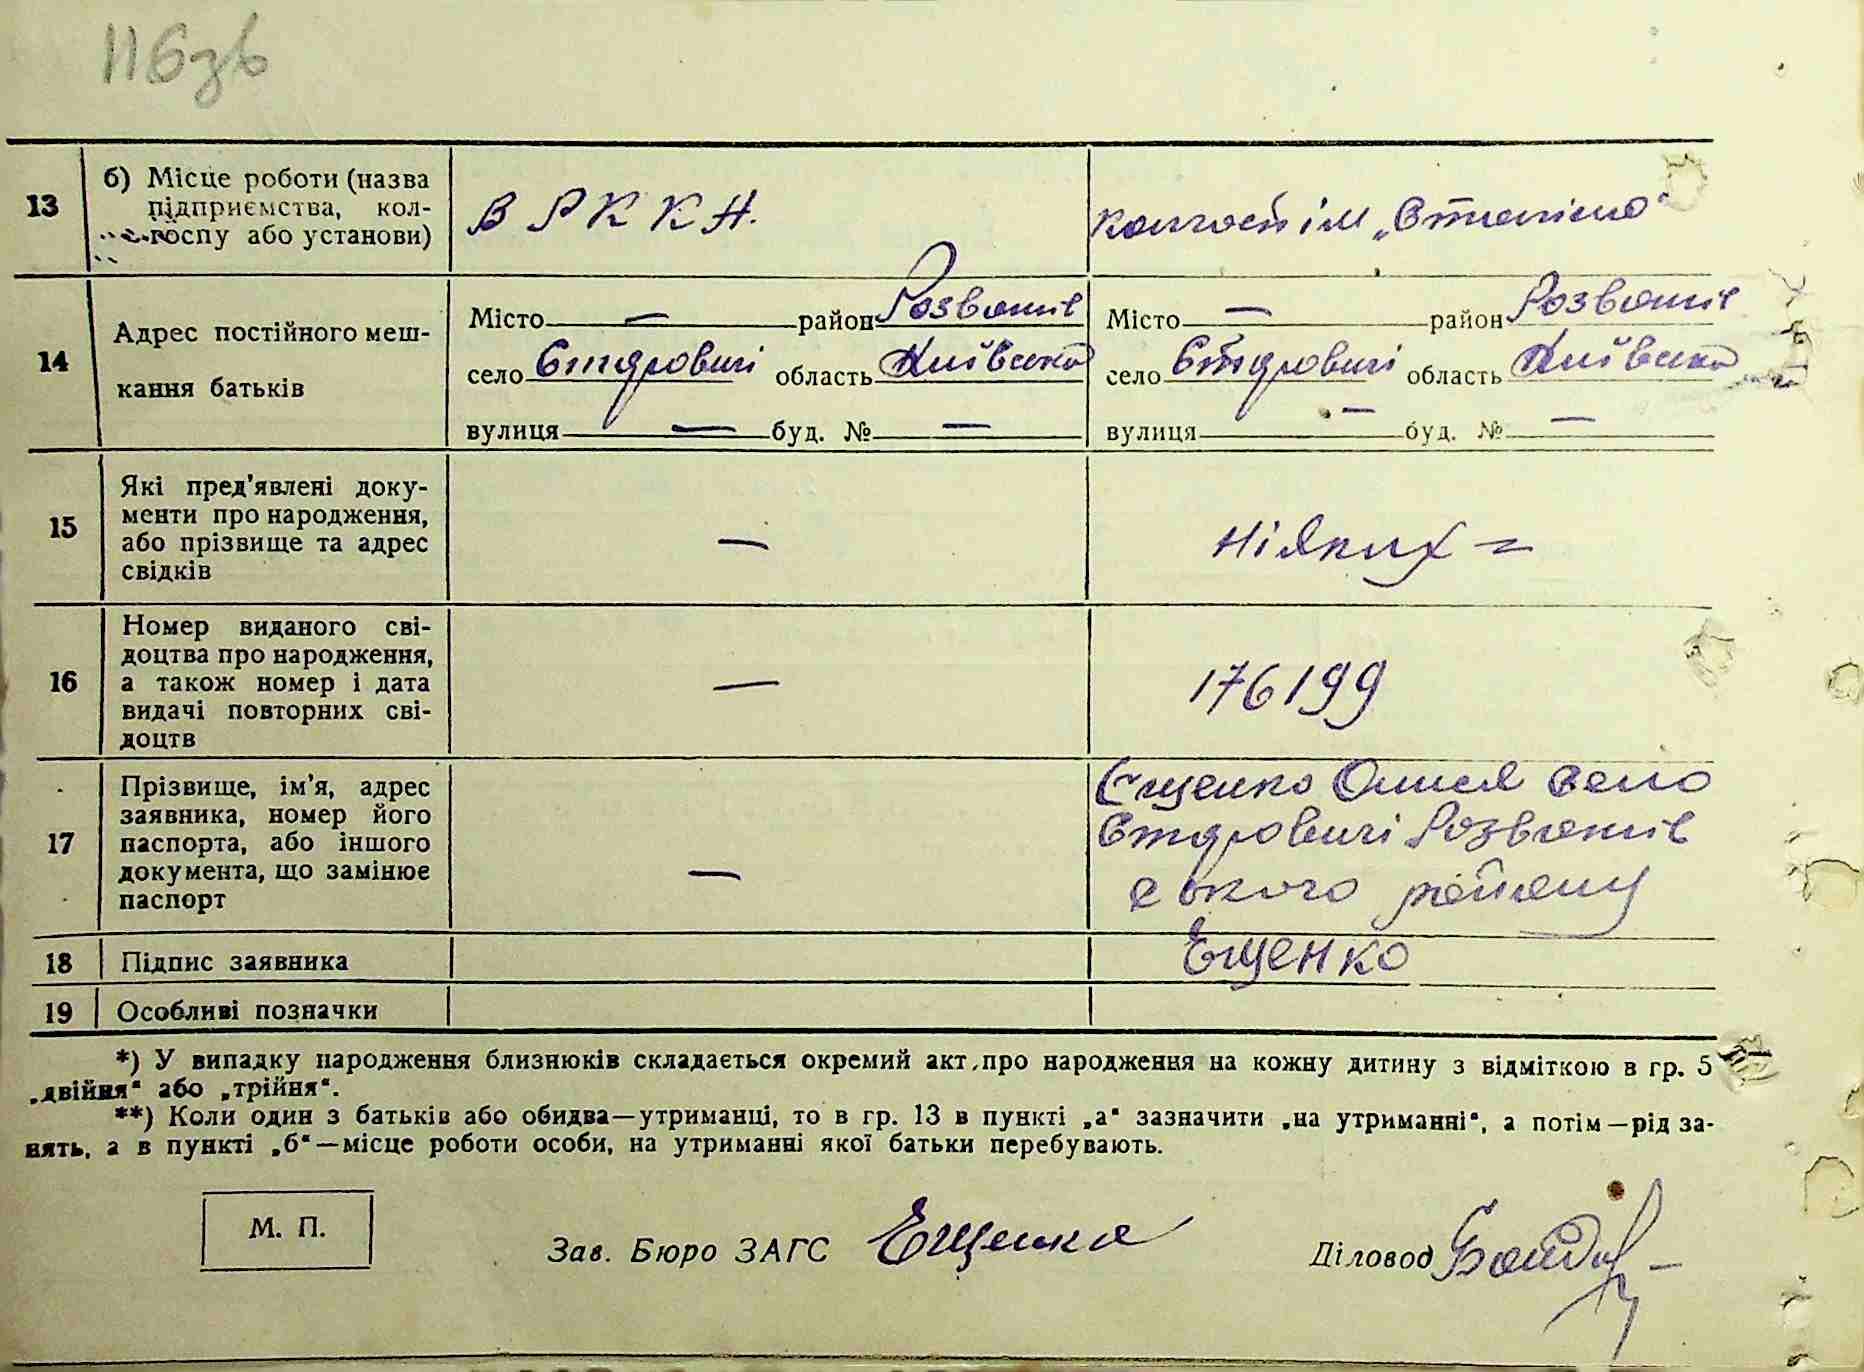 116зв
13 б) Місце роботи (назва підприємства, колгоспу або установи) В Р К К А. колгосп ім „Сталіна“
14 Адрес постійного мешкання батьків
Місто — район Розважів Місто — район Розважів
село область Київська село область Київська
вулиця — буд. № — вулиця — буд. № —
15 Які пред'явлені документи про народження, або прізвище та адрес свідків — ніяких =
16 Номер виданого свідоцтва про народження, а також номер і дата видачі повторних свідоцтв — 176199
17 Прізвище, ім'я, адрес заявника, номер його паспорта, або іншого документа, що замінює паспорт —
Єщенко село
Розважів
ського району
18 Підпис заявника Ещенко
19 Особливі позначки
*) У випадку народження близнюків складається окремий акт про народження на кожну дитину з відміткою в гр. 5
„двійня“ або „трійня“.
**) Коли один з батьків або обидва—утриманці, то в гр. 13 в пункті „а“ зазначити „на утриманні“, а потім—рід за-
нять, а в пункті „б“—місце роботи особи, на утриманні якої батьки перебувають.
М. П.
Зав. Бюро ЗАГС Ещенко Діловод